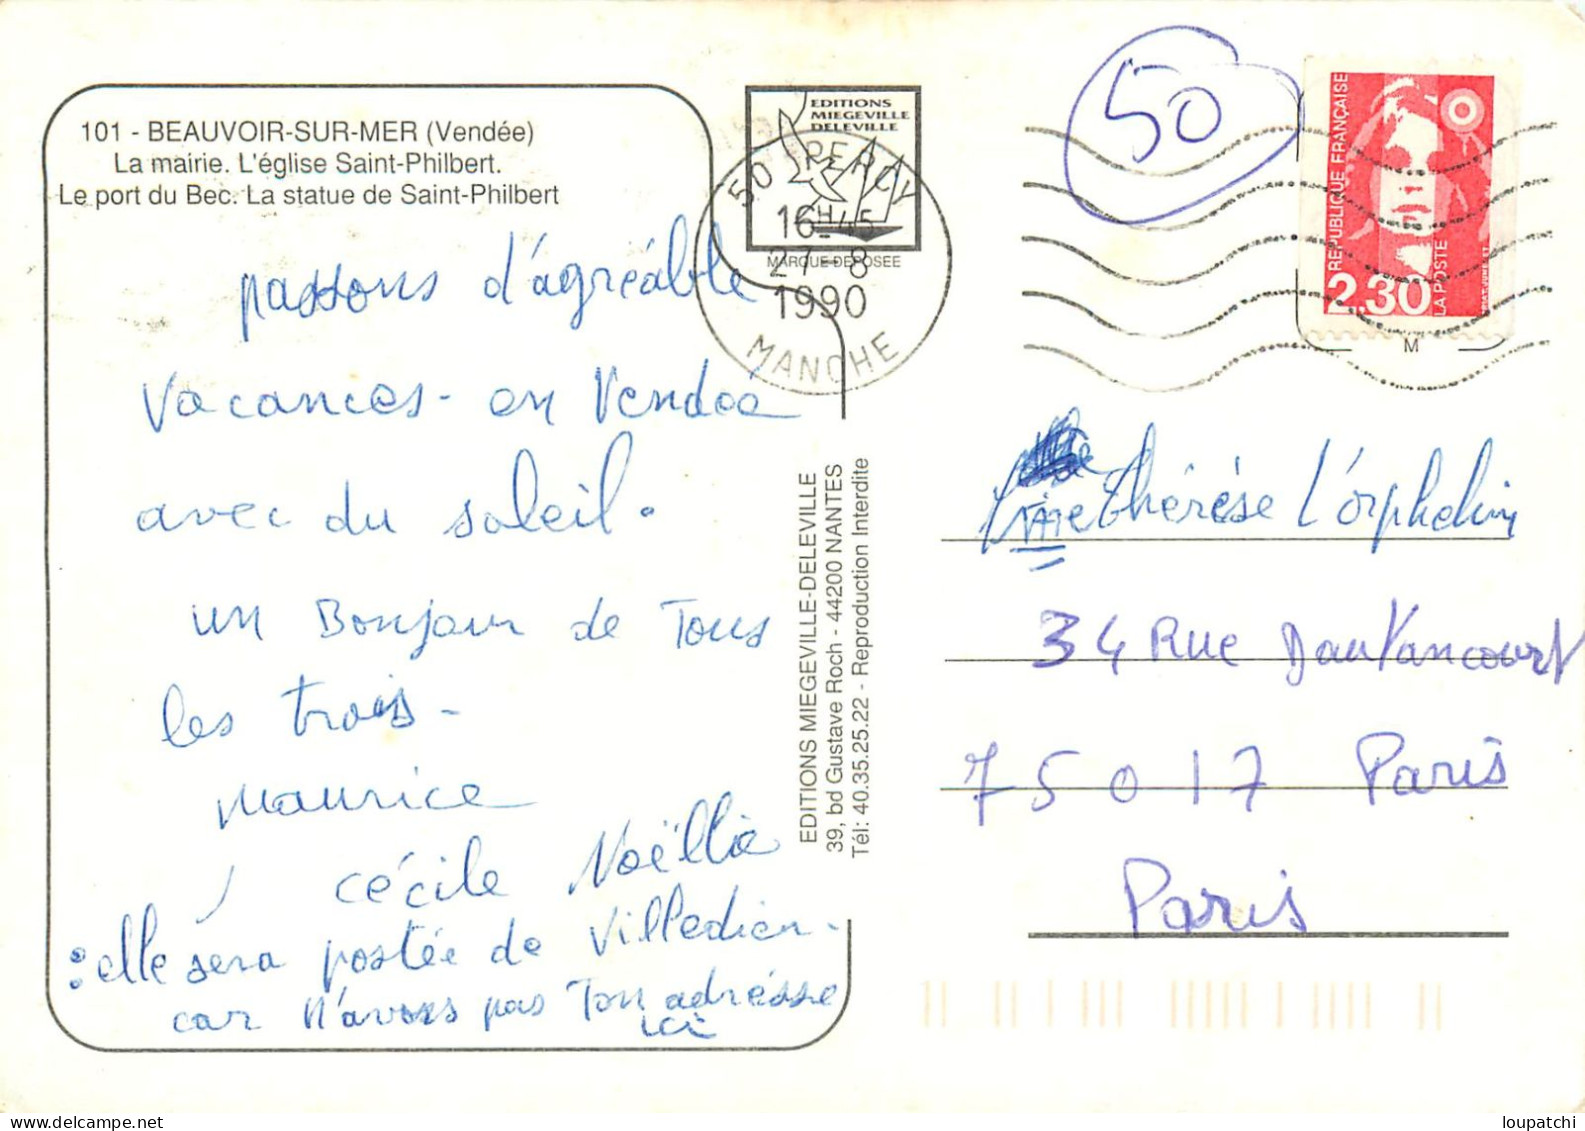 101 - BEAUVOIR-SUR-MER (Vendée)
La mairie. L'église Saint-Philbert.
Le port du Bec. La statue de Saint-Philbert
passons d'agréable
vacances - en Vendée
avec du soleil.
un Bonjour de Tous
les trois -
maurice
cécile Noëllie
: elle sera postée de Villedieu -
car N'avons pas Ton adrésse
ici
EDITIONS
MIEGEVILLE
DELEVILLE
MARQUE DEPOSEE
50 PERCY
16H45
27-8
1990
MANCHE
EDITIONS MIEGEVILLE-DELEVILLE
39, bd Gustave Roch - 44200 NANTES
Tél: 40.35.25.22 - Reproduction Interdite
50
REPUBLIQUE FRANÇAISE
2.30
LA POSTE
M
thérèse L'orphelin
34 Rue Dautancourt
75017 Paris
Paris
loupatchi